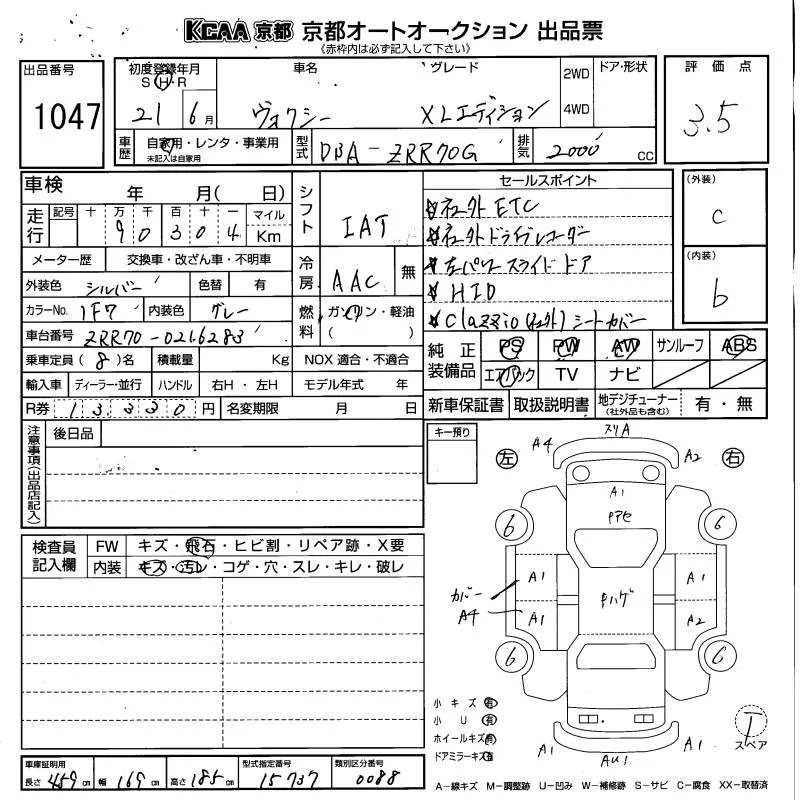 KCAA 京都 京都オートオークション 出品票
《赤枠内は必ず記入して下さい》
出品番号 1047
初度登録年月 S H R 21 6月
車名 ヴォクシー
グレード XLエディション
2WD 4WD
ドア・形状
評価点 3.5
車歴 自家用・レンタ・事業用
未記入は自家用
型式 DBA-ZRR70G
排気 2000 CC
車検 年 月( 日)
走行 記号 十 万 千 百 十 一 マイル Km
90304
メーター歴 交換車・改ざん車・不明車
外装色 シルバー 色替 有
カラーNo. 1F7 内装色 グレー
車台番号 ZRR70-0216283
乗車定員(8)名 積載量 Kg NOX 適合・不適合
輸入車 ディーラー・並行 ハンドル 右H・左H モデル年式 年
R券 13330円 名変期限 月 日
シフト IAT
冷房 AAC 無
燃料 ガソリン・軽油
( )
セールスポイント
☆社外ETC
☆社外ドライブレコーダー
☆左パワースライドドア
☆HID
☆Clazzio(社外)シートカバー
(外装) C
(内装) b
純正装備品 PS PW AW サンルーフ ABS
エアバック TV ナビ
新車保証書 取扱説明書 地デジチューナー(社外品も含む) 有・無
注意事項(出品店記入)
後日品
キー預り
検査員記入欄
FW キズ・飛石・ヒビ割・リペア跡・X要
内装 キズ・汚レ・コゲ・穴・スレ・キレ・破レ
左 右
A4 スリA A2
A1
6 6
カバー A4
A1 A1
A1 A2
6 6
小キズ 有
小U 有
ホイールキズ 有
ドアミラーキズ 有
A1 AU1 A1
T スペア
車庫証明用 長さ 459cm 幅 169cm 高さ 185cm
型式指定番号 15737
類別区分番号 0088
A-線キズ M-調整跡 U-凹み W-補修跡 S-サビ C-腐食 XX-取替済